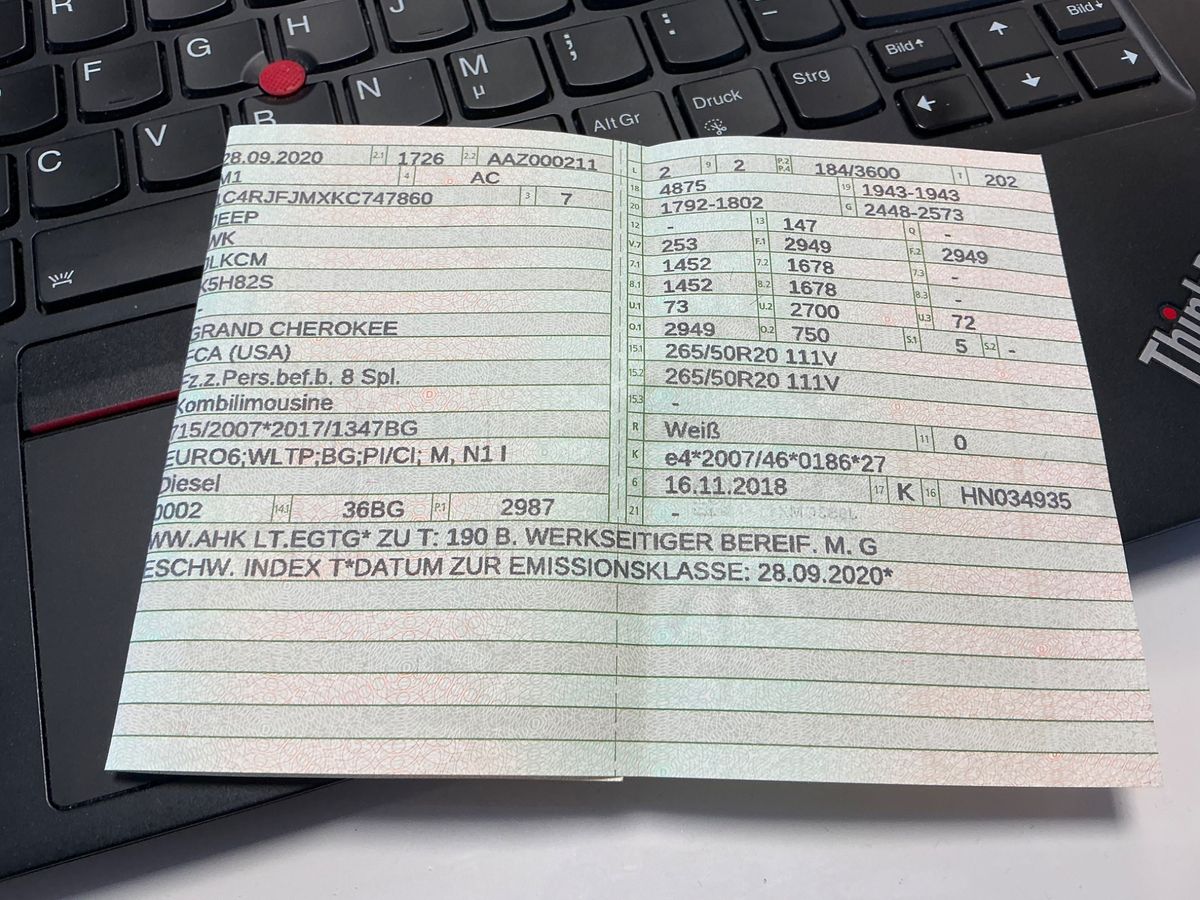 R
J
H
G
F
M
µ
N
B
V
C
;
,
:
.
-
Bild↑
Bild↓
Strg
Druck
Alt Gr
↑
←
↓
→
Think
28.09.2020 2.1 1726 2.2 AAZ000211
M1 4 AC
1C4RJFJMXKC747860 3 7
JEEP
WK
JLKCM
K5H82S
-
GRAND CHEROKEE
FCA (USA)
Fz.z.Pers.bef.b. 8 Spl.
Kombilimousine
715/2007*2017/1347BG
EURO6;WLTP;BG;PI/CI; M, N1 I
Diesel
0002 14.1 36BG P.1 2987
L 2 9 2 P.2 P.4 184/3600 T 202
18 4875 19 1943-1943
20 1792-1802 G 2448-2573
12 - 13 147 Q -
V.7 253 F.1 2949 F.2 2949
7.1 1452 7.2 1678 7.3 -
8.1 1452 8.2 1678 8.3 -
U.1 73 U.2 2700 U.3 72
O.1 2949 O.2 750 S.1 5 S.2 -
15.1 265/50R20 111V
15.2 265/50R20 111V
15.3 -
R Weiß 11 0
K e4*2007/46*0186*27
6 16.11.2018 17 K 16 HN034935
21 -
WW.AHK LT.EGTG* ZU T: 190 B. WERKSEITIGER BEREIF. M. G
ESCHW. INDEX T*DATUM ZUR EMISSIONSKLASSE: 28.09.2020*